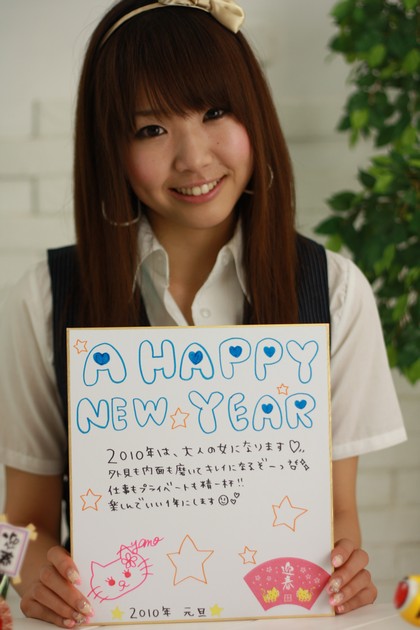 A HAPPY
NEW YEAR
2010年は、大人の女になります♡
外見も内面も磨いてキレイになるぞーっ
仕事もプライベートも積極的!!
楽しんでいい1年にします☺♡
ayano
迎春
2010年 元旦
迎春